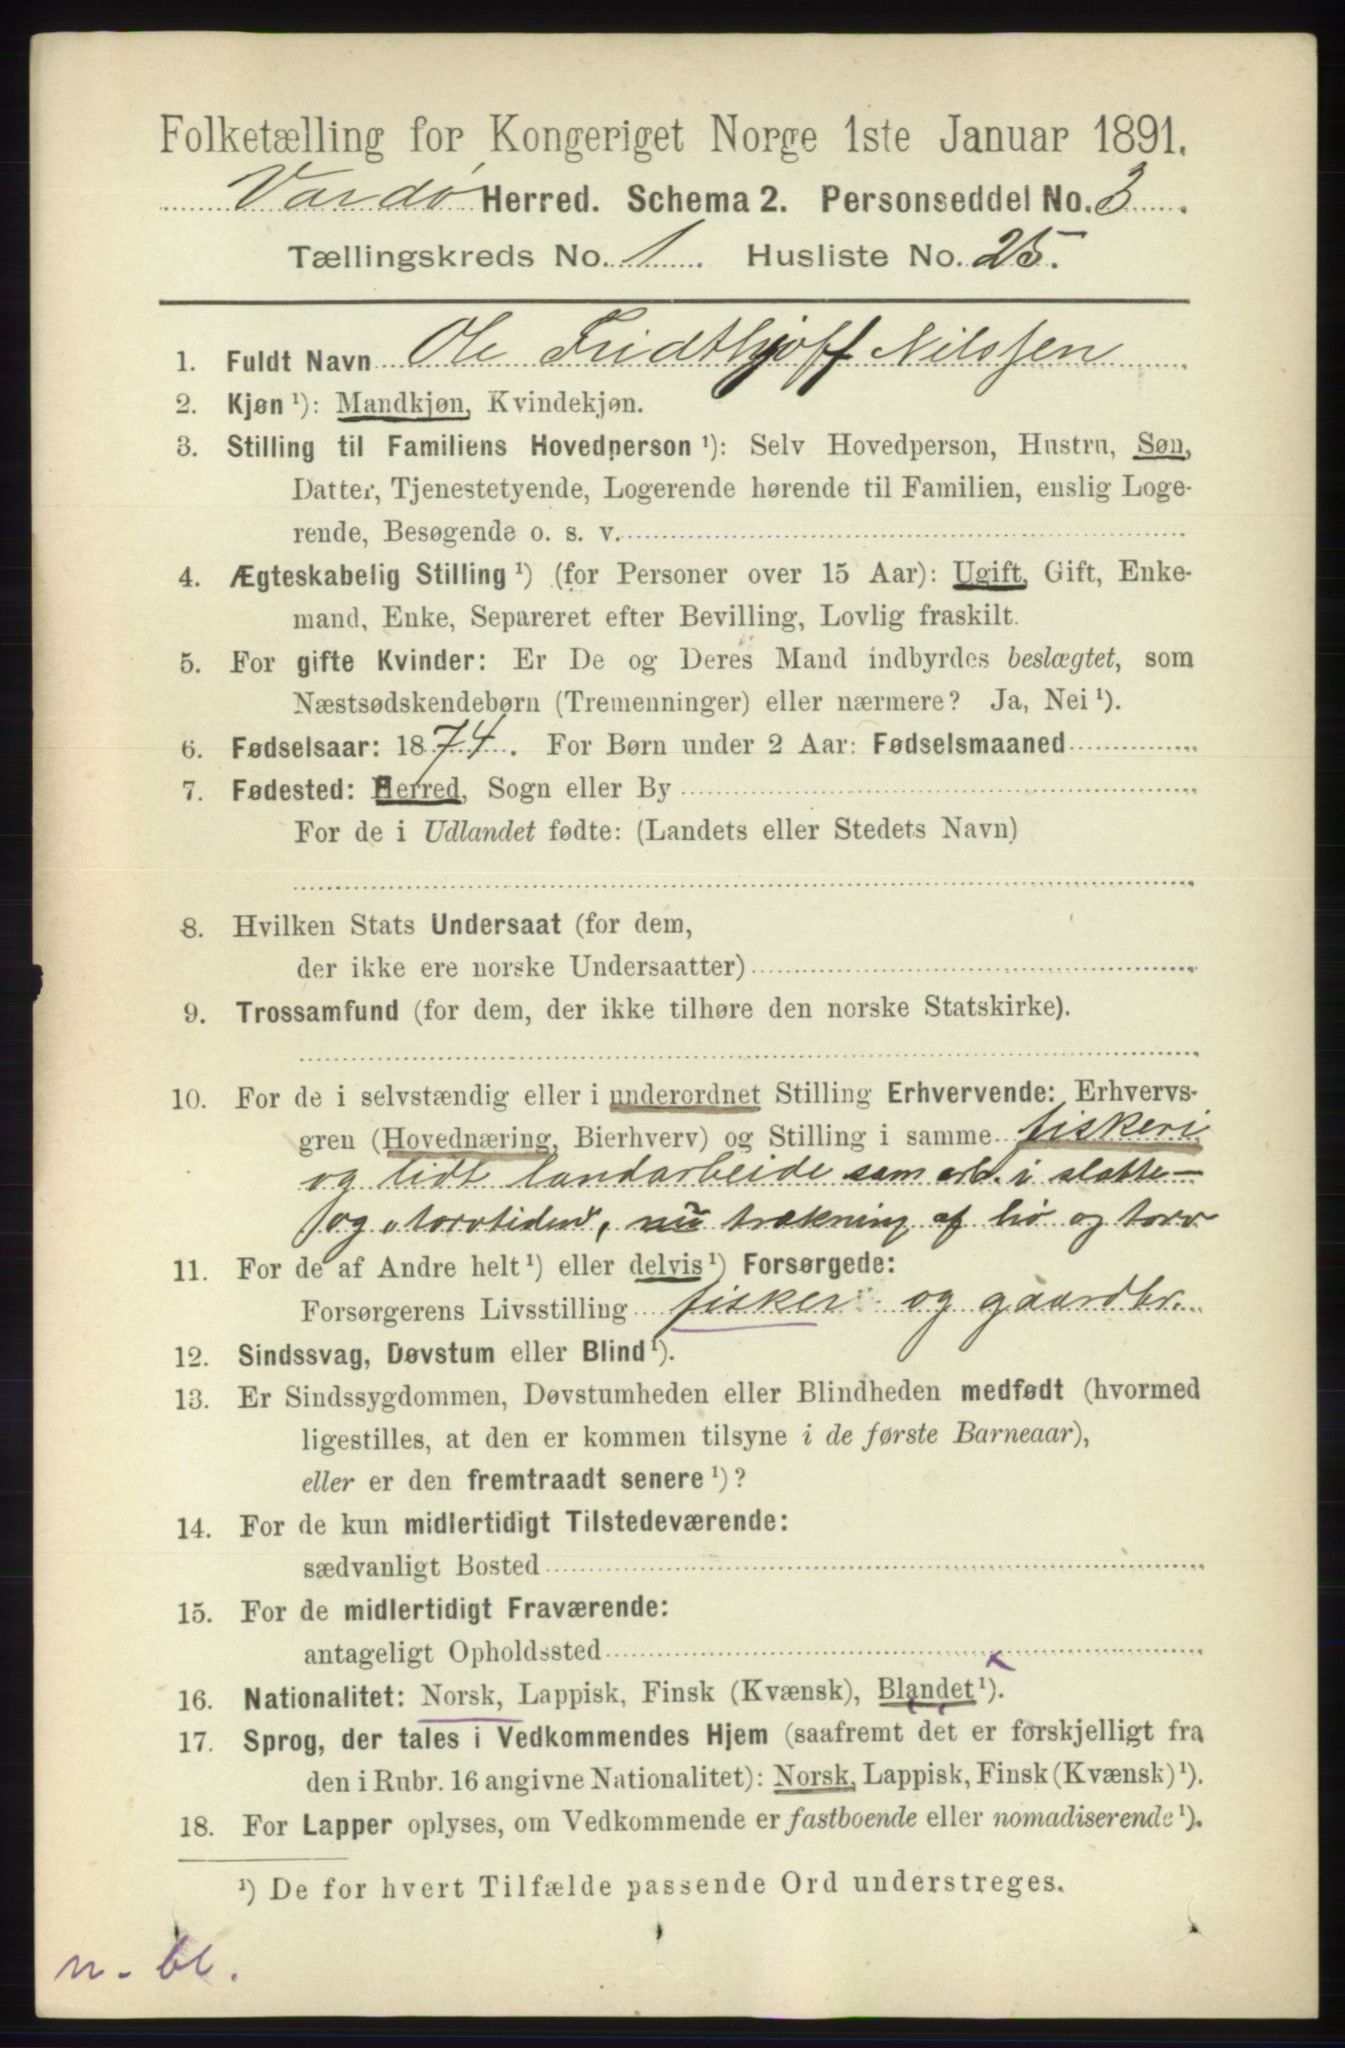 Folketælling for Kongeriget Norge 1ste Januar 1891.
Vardø Herred. Schema 2. Personseddel No. 3
Tællingskreds No. 1 Husliste No. 25.
1. Fuldt Navn Ole Fridthjoff Nilssen
2. Kjøn ¹): Mandkjøn, Kvindekjøn.
3. Stilling til Familiens Hovedperson ¹): Selv Hovedperson, Hustru, Søn,
Datter, Tjenestetyende, Logerende hørende til Familien, enslig Loge-
rende, Besøgende o. s. v.
4. Ægteskabelig Stilling ¹) (for Personer over 15 Aar): Ugift, Gift, Enke-
mand, Enke, Separeret efter Bevilling, Lovlig fraskilt.
5. For gifte Kvinder: Er De og Deres Mand indbyrdes beslægtet, som
Næstsødskendebørn (Tremenninger) eller nærmere? Ja, Nei ¹).
6. Fødselsaar: 1874. For Børn under 2 Aar: Fødselsmaaned
7. Fødested: Herred, Sogn eller By
For de i Udlandet fødte: (Landets eller Stedets Navn)
8. Hvilken Stats Undersaat (for dem,
der ikke ere norske Undersaatter)
9. Trossamfund (for dem, der ikke tilhøre den norske Statskirke).
10. For de i selvstændig eller i underordnet Stilling Erhvervende: Erhvervs-
gren (Hovednæring, Bierhverv) og Stilling i samme fiskeri
og lidt landarbeide som arb. i slotte-
og "torvtiden", nu trækning af hø og torv
11. For de af Andre helt ¹) eller delvis ¹) Forsørgede:
Forsørgerens Livsstilling fisker og gaardbr.
12. Sindssvag, Døvstum eller Blind ¹).
13. Er Sindssygdommen, Døvstumheden eller Blindheden medfødt (hvormed
ligestilles, at den er kommen tilsyne i de første Barneaar),
eller er den fremtraadt senere ¹)?
14. For de kun midlertidigt Tilstedeværende:
sædvanligt Bosted
15. For de midlertidigt Fraværende:
antageligt Opholdssted
16. Nationalitet: Norsk, Lappisk, Finsk (Kvænsk), Blandet ¹).
17. Sprog, der tales i Vedkommendes Hjem (saafremt det er forskjelligt fra
den i Rubr. 16 angivne Nationalitet): Norsk, Lappisk, Finsk (Kvænsk) ¹).
18. For Lapper oplyses, om Vedkommende er fastboende eller nomadiserende ¹).
¹) De for hvert Tilfælde passende Ord understreges.
n. bl.